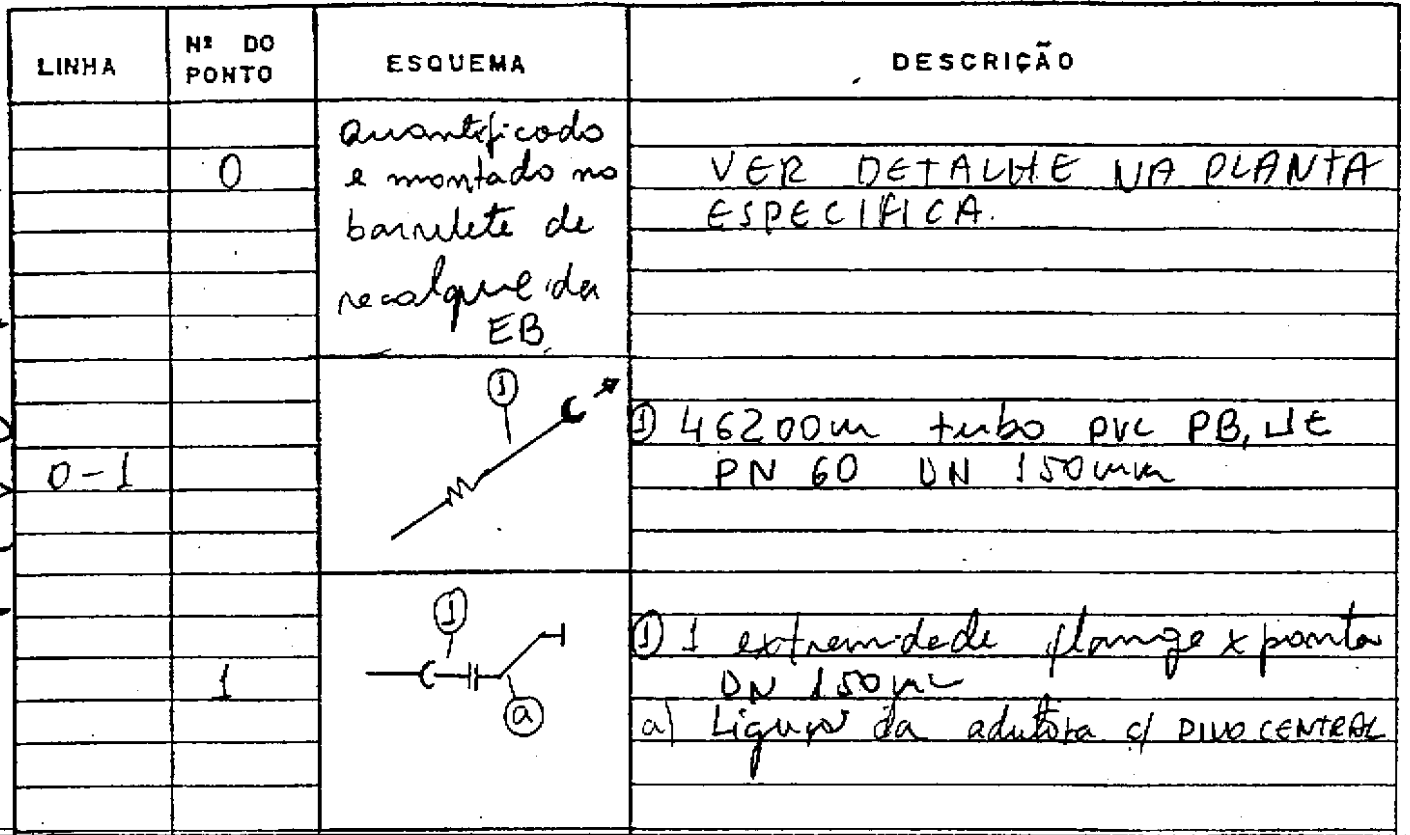 LINHA
Nº DO PONTO
ESQUEMA
DESCRIÇÃO
0
Quantificado
e montado no
barrilete de
recalque da
EB.
VER DETALHE NA PLANTA
ESPECIFICA.
0-1
1
1 46200m tubo PVC PB, JE
PN 60 DN 150mm
1
1
a
1 1 extremidade flange x ponta
DN 150mm
a) Ligação da adutora c/ PIVO CENTRAL